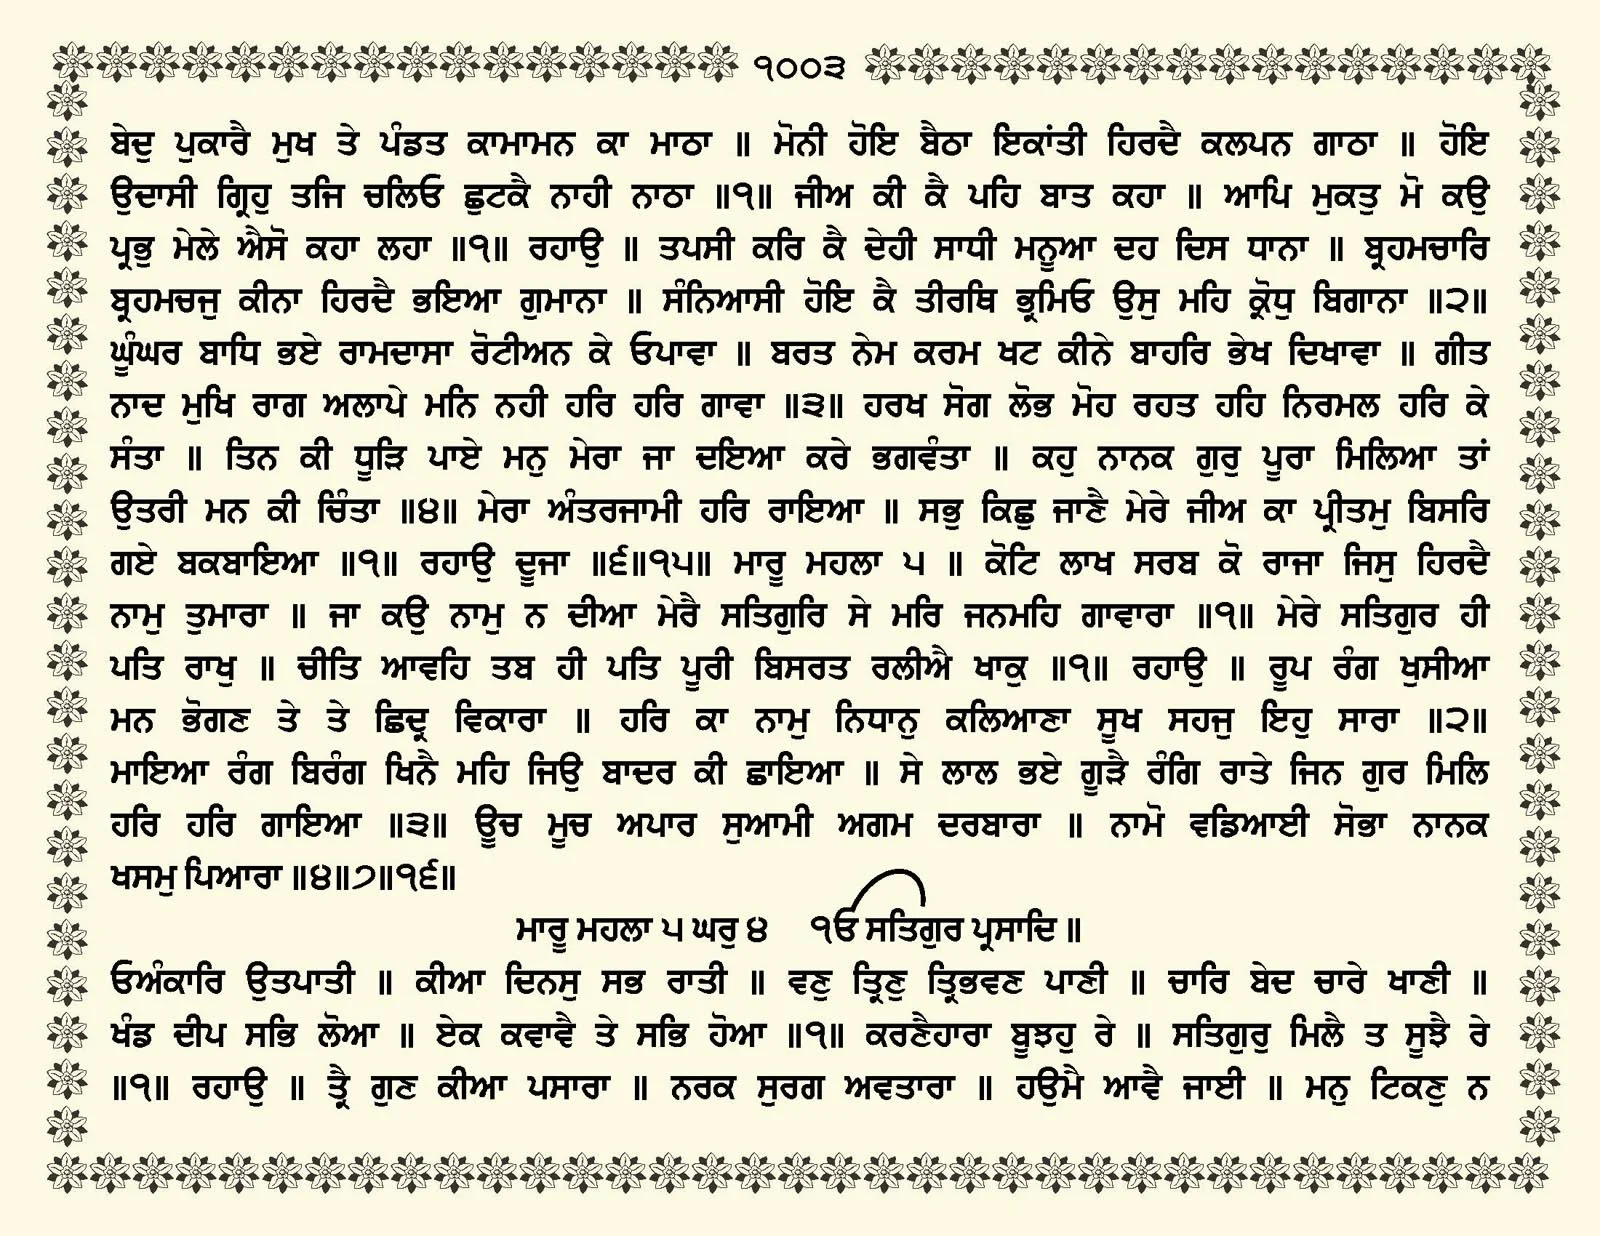 ੧੦੦੩
ਬੇਦੁ ਪੁਕਾਰੈ ਮੁਖ ਤੇ ਪੰਡਤ ਕਾਮਾਮਨ ਕਾ ਮਾਠਾ ॥ ਮੋਨੀ ਹੋਇ ਬੈਠਾ ਇਕਾਂਤੀ ਹਿਰਦੈ ਕਲਪਨ ਗਾਠਾ ॥ ਹੋਇ
ਉਦਾਸੀ ਗ੍ਰਿਹੁ ਤਜਿ ਚਲਿਓ ਛੁਟਕੈ ਨਾਹੀ ਨਾਠਾ ॥੧॥ ਜੀਅ ਕੀ ਕੈ ਪਹਿ ਬਾਤ ਕਹਾ ॥ ਆਪਿ ਮੁਕਤੁ ਮੋ ਕਉ
ਪ੍ਰਭੁ ਮੇਲੇ ਐਸੋ ਕਹਾ ਲਹਾ ॥੧॥ ਰਹਾਉ ॥ ਤਪਸੀ ਕਰਿ ਕੈ ਦੇਹੀ ਸਾਧੀ ਮਨੂਆ ਦਹ ਦਿਸ ਧਾਨਾ ॥ ਬ੍ਰਹਮਚਾਰਿ
ਬ੍ਰਹਮਚਜੁ ਕੀਨਾ ਹਿਰਦੈ ਭਇਆ ਗੁਮਾਨਾ ॥ ਸੰਨਿਆਸੀ ਹੋਇ ਕੈ ਤੀਰਥਿ ਭ੍ਰਮਿਓ ਉਸੁ ਮਹਿ ਕ੍ਰੋਧੁ ਬਿਗਾਨਾ ॥੨॥
ਘੂੰਘਰ ਬਾਧਿ ਭਏ ਰਾਮਦਾਸਾ ਰੋਟੀਅਨ ਕੇ ਓਪਾਵਾ ॥ ਬਰਤ ਨੇਮ ਕਰਮ ਖਟ ਕੀਨੇ ਬਾਹਰਿ ਭੇਖ ਦਿਖਾਵਾ ॥ ਗੀਤ
ਨਾਦ ਮੁਖਿ ਰਾਗ ਅਲਾਪੇ ਮਨਿ ਨਹੀ ਹਰਿ ਹਰਿ ਗਾਵਾ ॥੩॥ ਹਰਖ ਸੋਗ ਲੋਭ ਮੋਹ ਰਹਤ ਹਹਿ ਨਿਰਮਲ ਹਰਿ ਕੇ
ਸੰਤਾ ॥ ਤਿਨ ਕੀ ਧੂੜਿ ਪਾਏ ਮਨੁ ਮੇਰਾ ਜਾ ਦਇਆ ਕਰੇ ਭਗਵੰਤਾ ॥ ਕਹੁ ਨਾਨਕ ਗੁਰੁ ਪੂਰਾ ਮਿਲਿਆ ਤਾਂ
ਉਤਰੀ ਮਨ ਕੀ ਚਿੰਤਾ ॥੪॥ ਮੇਰਾ ਅੰਤਰਜਾਮੀ ਹਰਿ ਰਾਇਆ ॥ ਸਭੁ ਕਿਛੁ ਜਾਣੈ ਮੇਰੇ ਜੀਅ ਕਾ ਪ੍ਰੀਤਮੁ ਬਿਸਰਿ
ਗਏ ਬਕਬਾਇਆ ॥੧॥ ਰਹਾਉ ਦੂਜਾ ॥੬॥੧੫॥ ਮਾਰੂ ਮਹਲਾ ੫ ॥ ਕੋਟਿ ਲਾਖ ਸਰਬ ਕੋ ਰਾਜਾ ਜਿਸੁ ਹਿਰਦੈ
ਨਾਮੁ ਤੁਮਾਰਾ ॥ ਜਾ ਕਉ ਨਾਮੁ ਨ ਦੀਆ ਮੇਰੈ ਸਤਿਗੁਰਿ ਸੇ ਮਰਿ ਜਨਮਹਿ ਗਾਵਾਰਾ ॥੧॥ ਮੇਰੇ ਸਤਿਗੁਰ ਹੀ
ਪਤਿ ਰਾਖੁ ॥ ਚੀਤਿ ਆਵਹਿ ਤਬ ਹੀ ਪਤਿ ਪੂਰੀ ਬਿਸਰਤ ਰਲੀਐ ਖਾਕੁ ॥੧॥ ਰਹਾਉ ॥ ਰੂਪ ਰੰਗ ਖੁਸੀਆ
ਮਨ ਭੋਗਣ ਤੇ ਤੇ ਛਿਦ੍ਰ ਵਿਕਾਰਾ ॥ ਹਰਿ ਕਾ ਨਾਮੁ ਨਿਧਾਨੁ ਕਲਿਆਣਾ ਸੂਖ ਸਹਜੁ ਇਹੁ ਸਾਰਾ ॥੨॥
ਮਾਇਆ ਰੰਗ ਬਿਰੰਗ ਖਿਨੈ ਮਹਿ ਜਿਉ ਬਾਦਰ ਕੀ ਛਾਇਆ ॥ ਸੇ ਲਾਲ ਭਏ ਗੂੜੈ ਰੰਗਿ ਰਾਤੇ ਜਿਨ ਗੁਰ ਮਿਲਿ
ਹਰਿ ਹਰਿ ਗਾਇਆ ॥੩॥ ਊਚ ਮੂਚ ਅਪਾਰ ਸੁਆਮੀ ਅਗਮ ਦਰਬਾਰਾ ॥ ਨਾਮੋ ਵਡਿਆਈ ਸੋਭਾ ਨਾਨਕ
ਖਸਮੁ ਪਿਆਰਾ ॥੪॥੭॥੧੬॥
ਮਾਰੂ ਮਹਲਾ ੫ ਘਰੁ ੪ ੴ ਸਤਿਗੁਰ ਪ੍ਰਸਾਦਿ ॥
ਓਅੰਕਾਰਿ ਉਤਪਾਤੀ ॥ ਕੀਆ ਦਿਨਸੁ ਸਭ ਰਾਤੀ ॥ ਵਣੁ ਤ੍ਰਿਣੁ ਤ੍ਰਿਭਵਣ ਪਾਣੀ ॥ ਚਾਰਿ ਬੇਦ ਚਾਰੇ ਖਾਣੀ ॥
ਖੰਡ ਦੀਪ ਸਭਿ ਲੋਆ ॥ ਏਕ ਕਵਾਵੈ ਤੇ ਸਭਿ ਹੋਆ ॥੧॥ ਕਰਣੈਹਾਰਾ ਬੂਝਹੁ ਰੇ ॥ ਸਤਿਗੁਰੁ ਮਿਲੈ ਤ ਸੂਝੈ ਰੇ
॥੧॥ ਰਹਾਉ ॥ ਤ੍ਰੈ ਗੁਣ ਕੀਆ ਪਸਾਰਾ ॥ ਨਰਕ ਸੁਰਗ ਅਵਤਾਰਾ ॥ ਹਉਮੈ ਆਵੈ ਜਾਈ ॥ ਮਨੁ ਟਿਕਣੁ ਨ